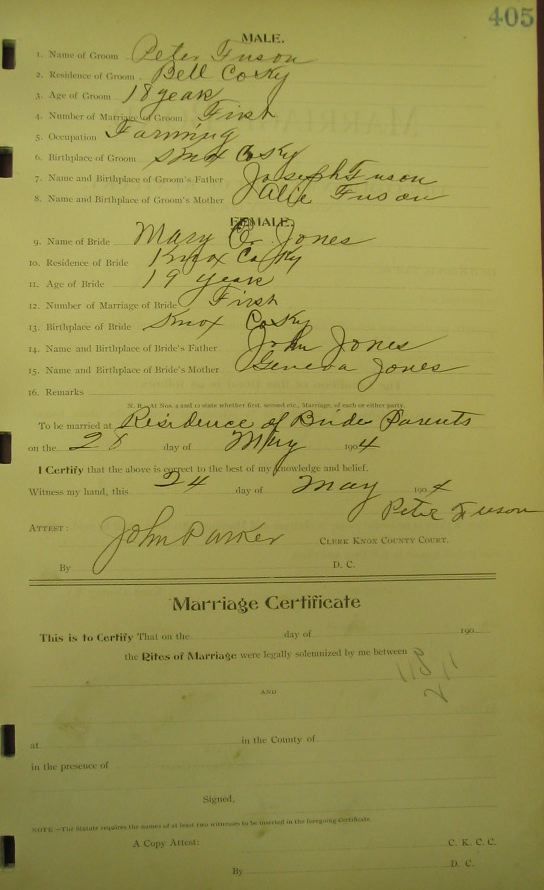 405
MALE.
1. Name of Groom Peter Fuson
2. Residence of Groom Bell Co Ky
3. Age of Groom 18 years
4. Number of Marriage of Groom First
5. Occupation Farming
6. Birthplace of Groom Knox Co Ky
7. Name and Birthplace of Groom's Father Joseph Fuson
8. Name and Birthplace of Groom's Mother Alie Fuson
FEMALE.
9. Name of Bride Mary Jones
10. Residence of Bride Knox Co Ky
11. Age of Bride 19 years
12. Number of Marriage of Bride First
13. Birthplace of Bride Knox Co Ky
14. Name and Birthplace of Bride's Father John Jones
15. Name and Birthplace of Bride's Mother Geneva Jones
16. Remarks
N. B.—At Nos. 4 and 12 state whether first, second etc., Marriage, of each or either party.
To be married at Residence of Bride Parents
on the 28 day of May 1904
I Certify that the above is correct to the best of my knowledge and belief.
Witness my hand, this 24 day of May 1904
Peter Fuson
ATTEST: John Parker CLERK KNOX COUNTY COURT.
By D. C.
Marriage Certificate
This is to Certify That on the day of 190
the Rites of Marriage were legally solemnized by me between
AND
at in the County of
in the presence of
Signed,
NOTE—The Statute requires the names of at least two witnesses to be inserted in the foregoing Certificate.
A Copy Attest: C. K. C. C.
By D. C.